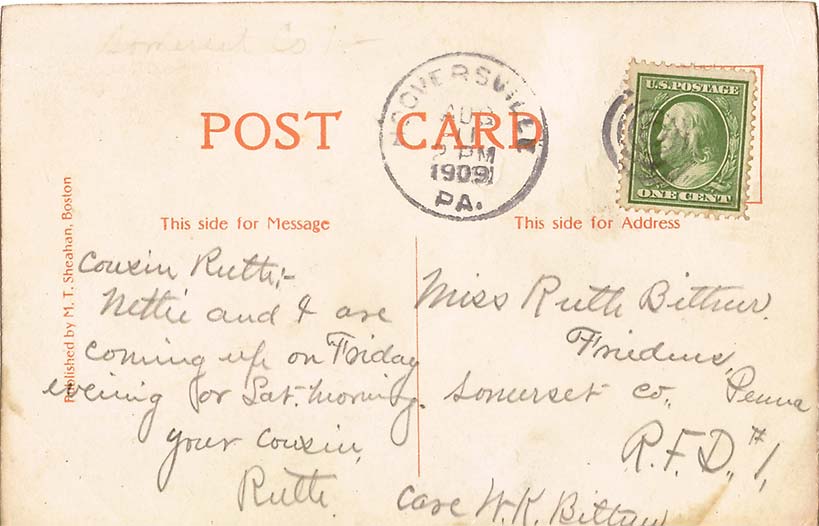 Somerset Co
POST CARD
HOOVERSVILLE
AUG
11
2 PM
1909
PA.
U.S. POSTAGE
ONE CENT
This side for Message
This side for Address
Published by M. T. Sheahan, Boston
Cousin Ruth;-
Nettie and I are
coming up on Friday
evening or Sat. morning.
your cousin,
Ruth.
Miss Ruth Bittner.
Friedens,
Somerset Co., Penna
R.F.D. #1,
Care W.K. Bittner